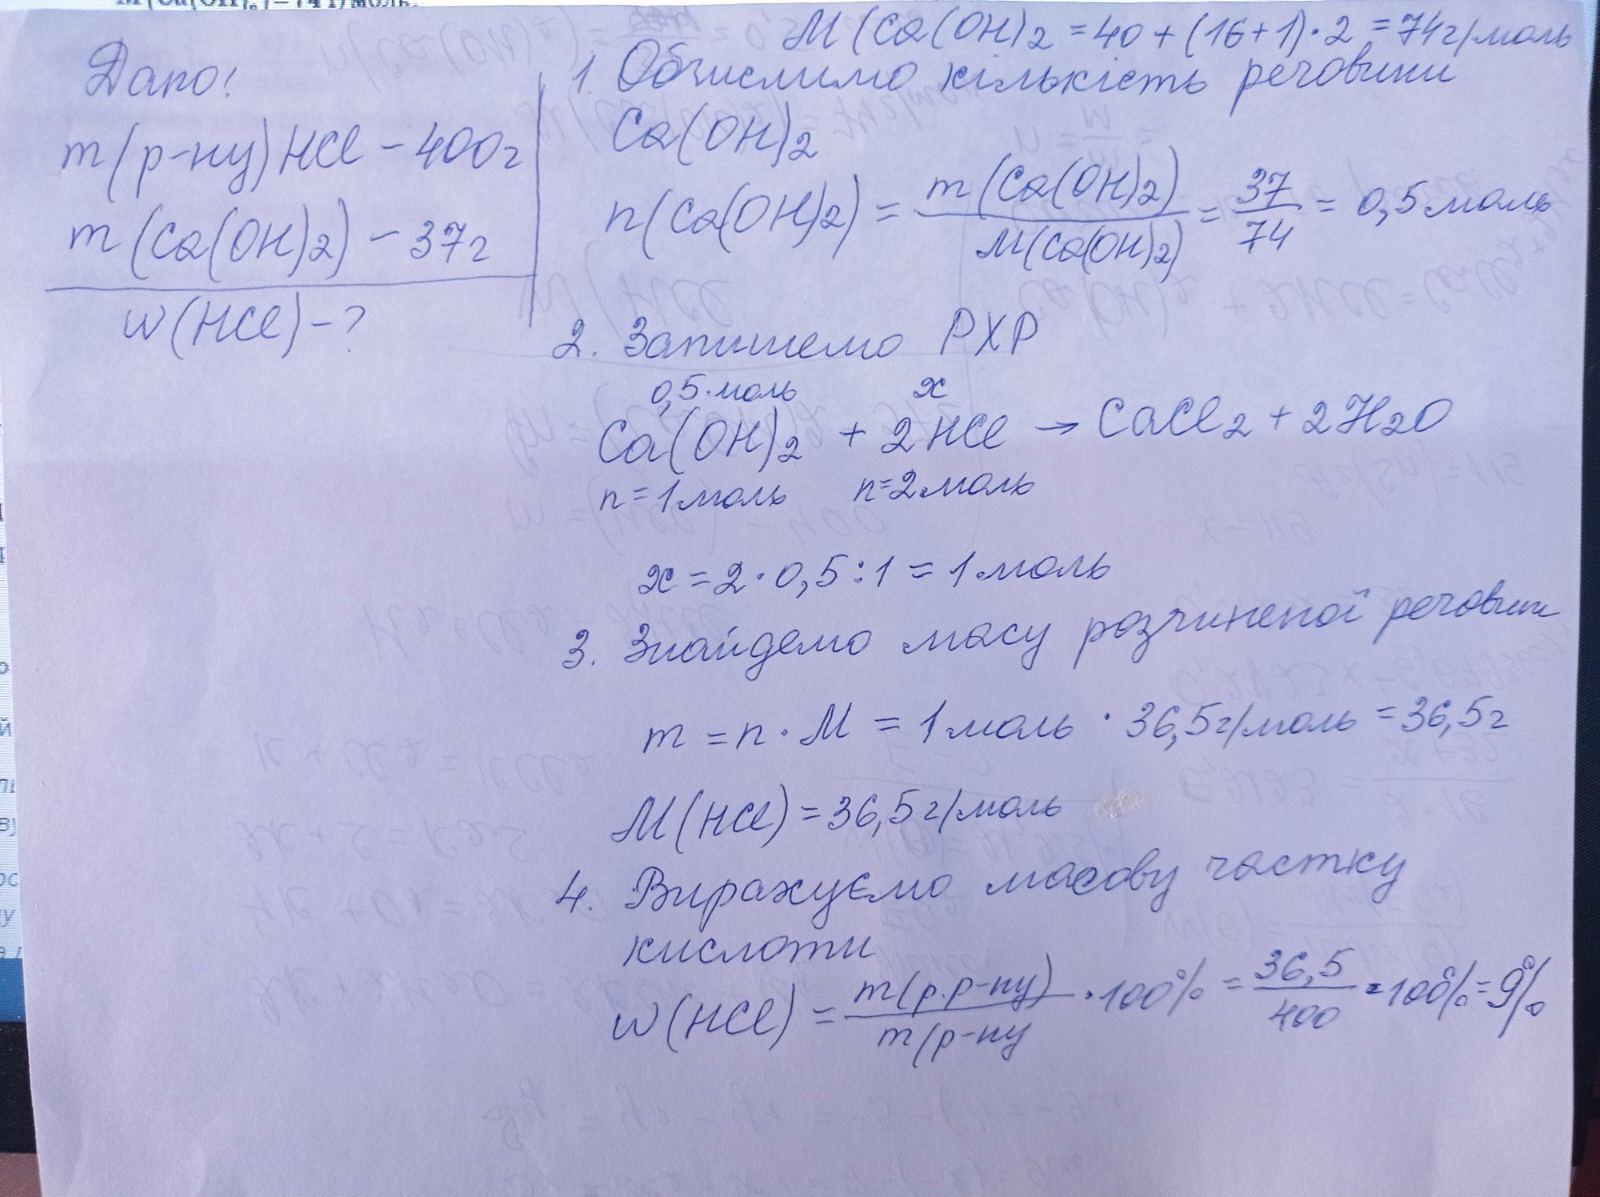 M(Ca(OH)2 = 40 + (16+1)·2 = 74г/моль
Дано:
m(р-ну)HCl – 400г
m(Ca(OH)2) – 37г
w(HCl) – ?
1. Обчислимо кількість речовини
Ca(OH)2
n(Ca(OH)2) = m(Ca(OH)2) / M(Ca(OH)2) = 37 / 74 = 0,5 моль
2. Запишемо РХР
0,5 моль x
Ca(OH)2 + 2HCl → CaCl2 + 2H2O
n=1моль n=2моль
x = 2·0,5:1 = 1 моль
3. Знайдемо масу розчиненої речовини
m = n·M = 1 моль · 36,5г/моль = 36,5г
M(HCl) = 36,5г/моль
4. Виражуємо масову частку
кислоти
w(HCl) = m(р.р-ну) / m(р-ну · 100% = 36,5 / 400 · 100% = 9%